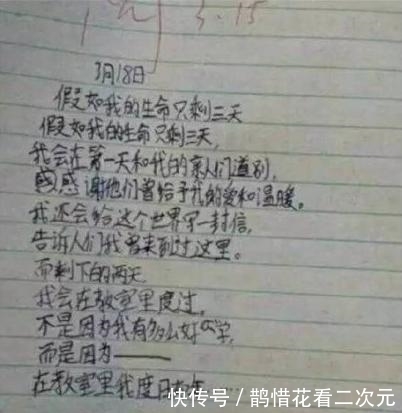 3.15
3月18日
假如我的生命只剩三天
假如我的生命只剩三天,
我会在第一天和我的亲人们道别,
感谢他们曾给予我的爱和温暖。
我还会给这个世界写一封信,
告诉人们我曾来到过这里。
而剩下的两天
我会在教室里度过,
不是因为我有多么好学,
而是因为——
在教室里我度日如年……
快传号/鹊惜花看二次元